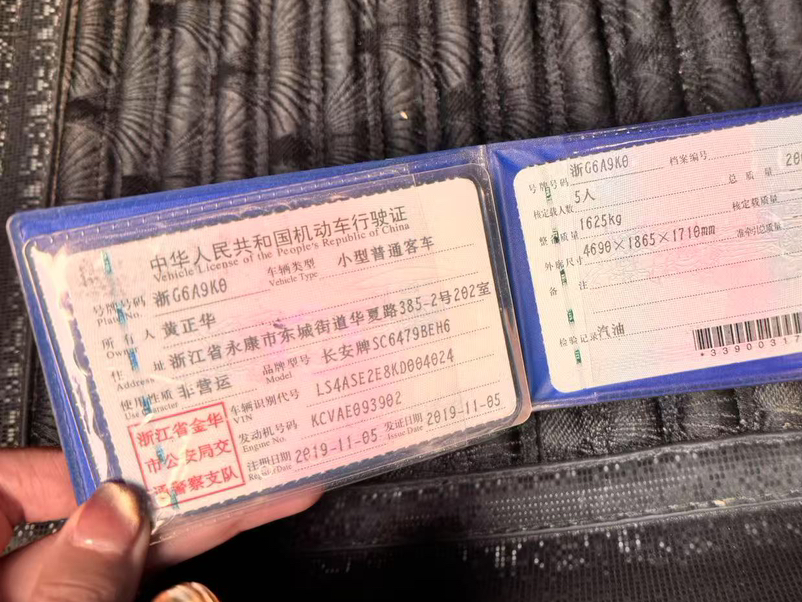 中华人民共和国机动车行驶证
Vehicle License of the People's Republic of China
号牌号码 浙G6A9K0 车辆类型 小型普通客车
Plate No. Vehicle Type
所有人 黄正华
Owner
住址 浙江省永康市东城街道华夏路385-2号202室
Address
使用性质 非营运 品牌型号 长安牌SC6479BEH6
Use Character Model
车辆识别代号 LS4ASE2E8KD004024
VIN
发动机号码 KCVAE093902
Engine No.
注册日期 2019-11-05 发证日期 2019-11-05
Register Date Issue Date
浙江省金华
市公安局交
通警察支队
号牌号码 浙G6A9K0 档案编号
核定载人数 5人 总质量 20
整备质量 1625kg 核定载质量
外廓尺寸 4690×1865×1710mm 准牵引总质量
备注
检验记录 汽油
*33900317